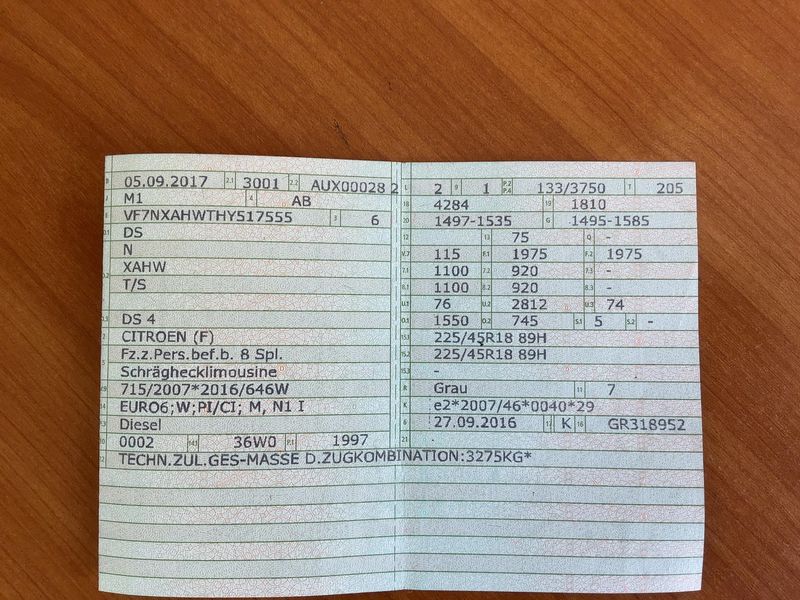 B 05.09.2017 2.1 3001 2.2 AUX00028 2
J M1 4 AB
E VF7NXAHWTHY517555 3 6
D.1 DS
N
D.2 XAHW
T/S
D.3 DS 4
2 CITROEN (F)
5 Fz.z.Pers.bef.b. 8 Spl.
Schräghecklimousine
V.9 715/2007*2016/646W
14 EURO6;W;PI/CI; M, N1 I
P.3 Diesel
10 0002 14.1 36W0 P.1 1997
22 TECHN.ZUL.GES-MASSE D.ZUGKOMBINATION:3275KG*
L 2 9 1 P.2 P.4 133/3750 T 205
18 4284 19 1810
20 1497-1535 G 1495-1585
12 13 75 Q -
V.7 115 F.1 1975 F.2 1975
7.1 1100 7.2 920 7.3 -
8.1 1100 8.2 920 8.3 -
U.1 76 U.2 2812 U.3 74
O.1 1550 O.2 745 S.1 5 S.2 -
15.1 225/45R18 89H
15.2 225/45R18 89H
15.3 -
R Grau 11 7
K e2*2007/46*0040*29
6 27.09.2016 17 K 16 GR318952
21